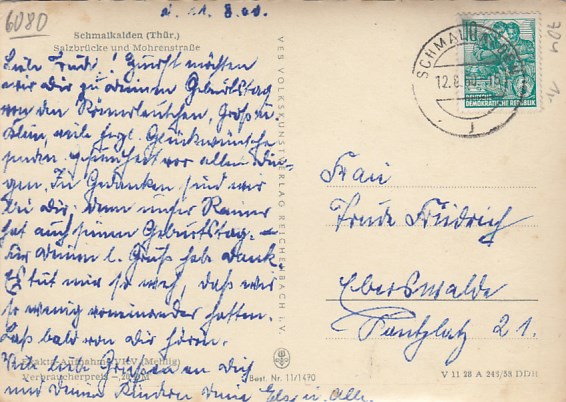 6080
d. 11.8.60.
Schmalkalden (Thür.)
Salzbrücke und Mohrenstraße
Liebe Trude! Zuerst möchten
wir dir zu deinem Geburtstag
von den Römersleutchen, Groß u.
Klein, viele herzl. Glückwünsche
senden, Gesundheit vor allen Din-
gen. In Gedanken sind wir
bei dir, denn unser Rainer
hat auch seinen Geburtstag. –
Für deinen l. Gruß hab Dank.
Es tut mir so weh, daß wir
so wenig voneinander hatten.
Laß bald von dir hören.
Viele liebe Grüße an dich
und deine Kinder deine Else u. Alle.
Exakta-Aufnahme VHV (Mehlig)
Verbraucherpreis – DM
VEB VOLKSKUNSTVERLAG REICHENBACH i. V.
Best. Nr. 11/1470
SCHMALKALDEN
12.8.60.-15
DEUTSCHE
DEMOKRATISCHE REPUBLIK
Frau
Trude Friedrich
Eberswalde
Pantzlatz 21.
V 11 28 A 245/58 DDR